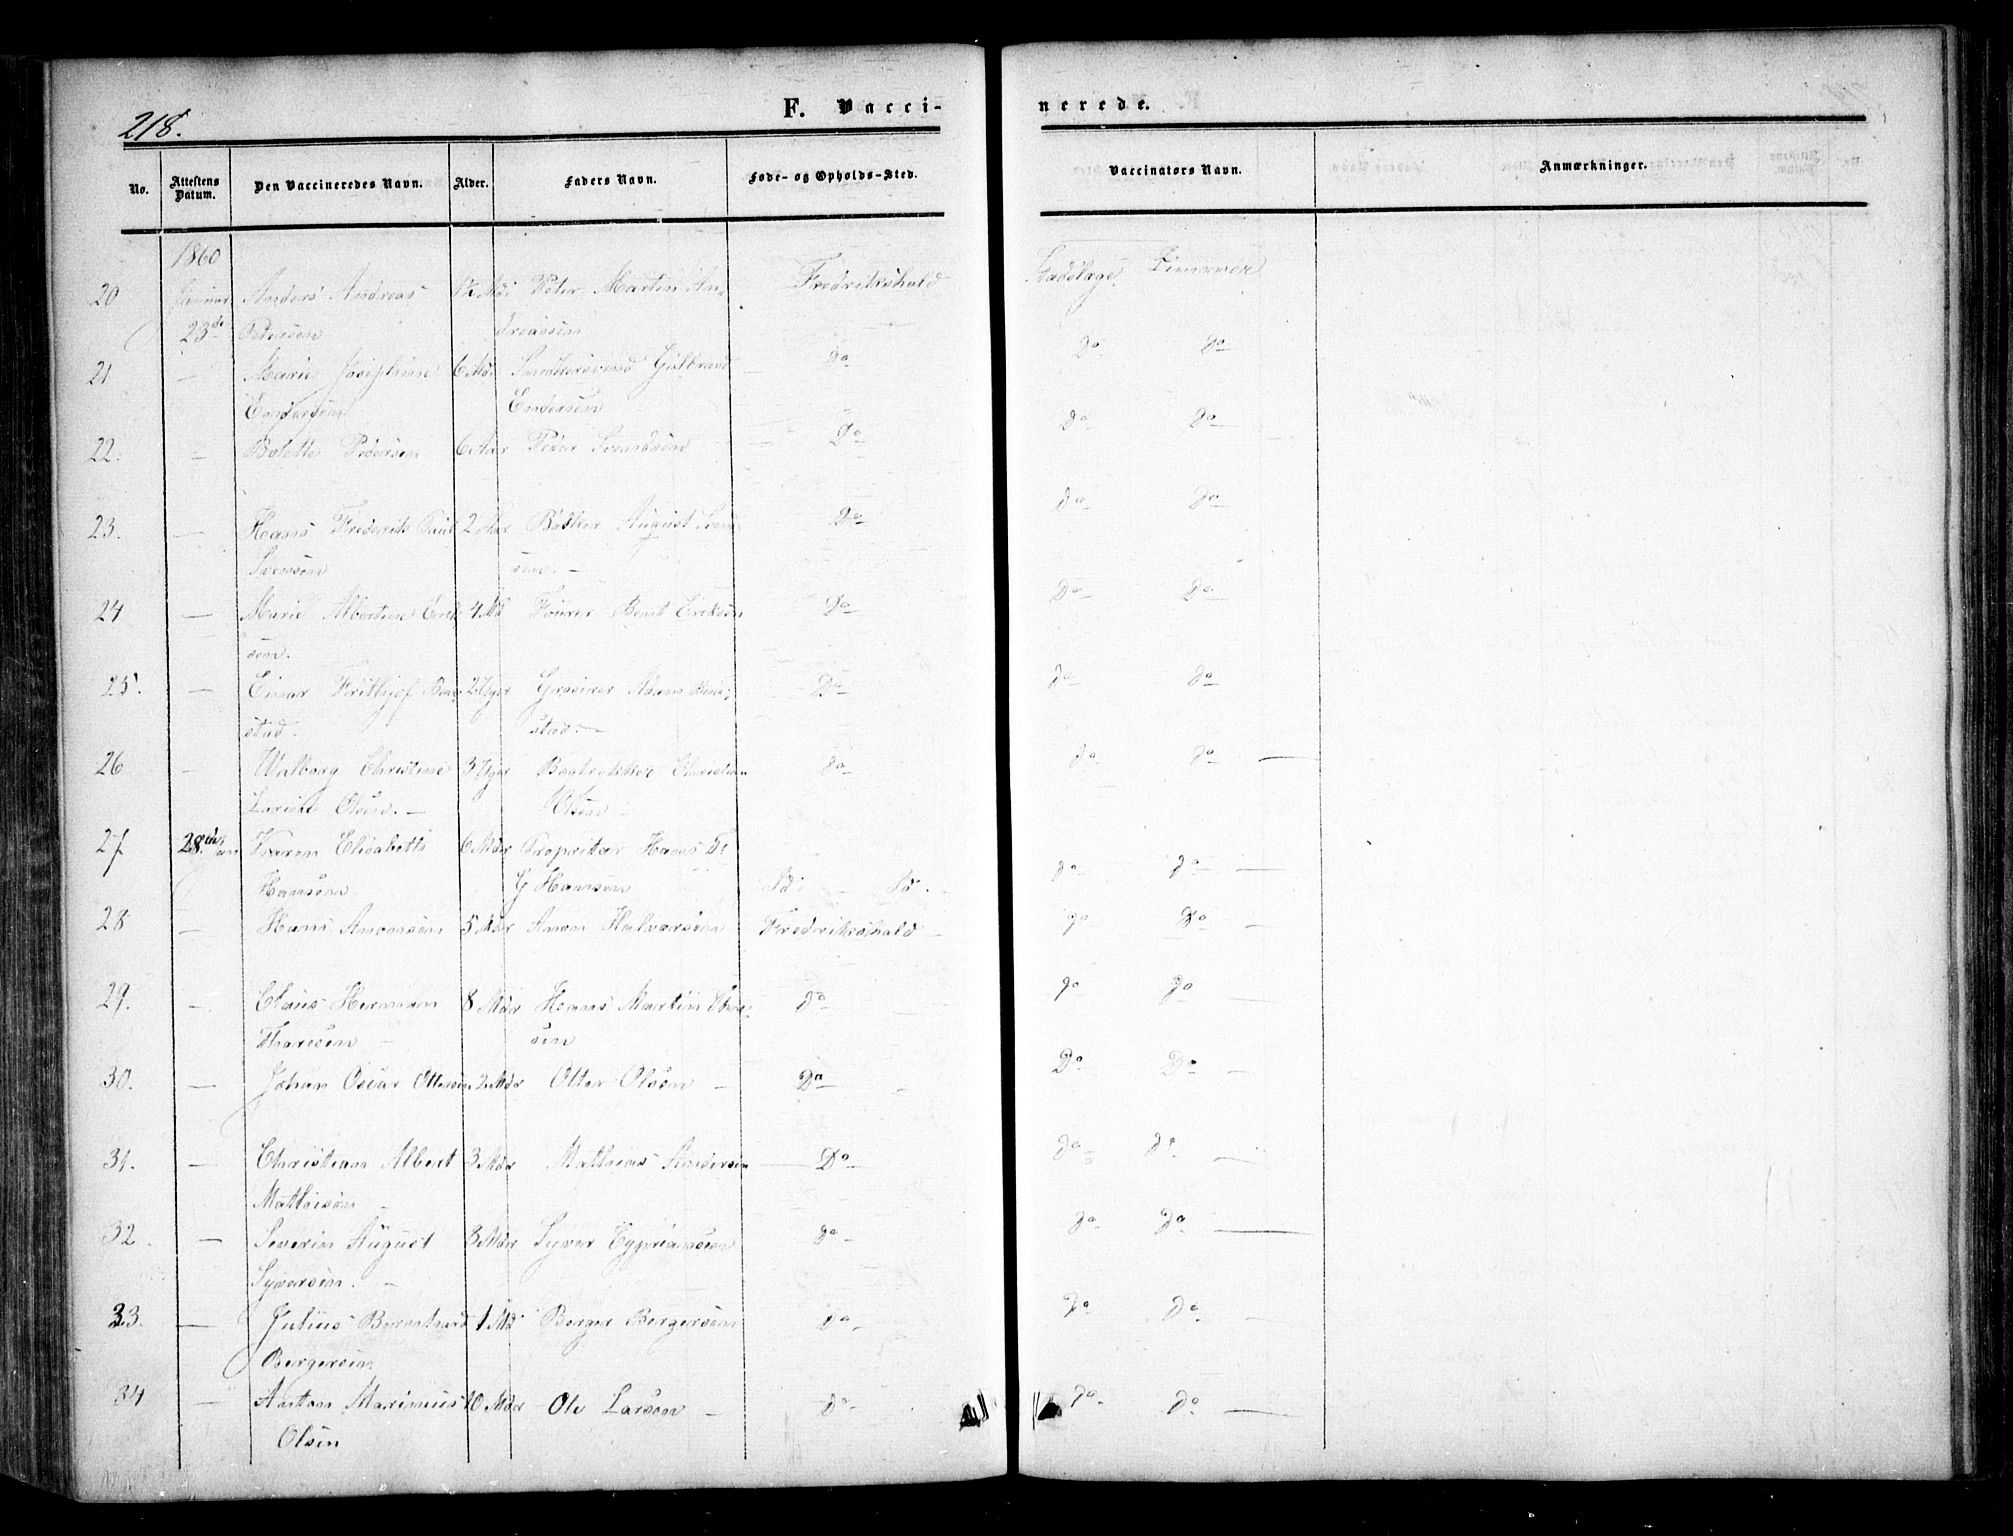 218.
F. Vacci-
nerede.
No.
Attestens Datum.
Den Vaccineredes Navn.
Alder.
Faders Navn.
Føde- og Opholds-Sted.
Vaccinators Navn.
Anmærkninger.
1860
20 Januar Anders Andreas Peter Martin An- Fredrikshald Stadslæge
23de Petersen dreassen
21 — Marie Josephine 6 Md. Gulbrand Do Do Do
Endersen Endersen
22. — Bolette Pedersen 6 Mdr Peder Svendsen Do do do
23. — Hans Frederik 2 Mdr Bødker August Do do do
24 — Marie Albertine Erik 4 Md Bernt Eriksen Do Do Do
sen.
25. — Einar Frithjof 2 Mdr Grosserer Do do do
stad. stad. —
26 — Walborg Christine 3 Mdr Bogtrykker Christian do do do —
Olsen. — Olsen —
27 28de Karen Elisabeth 6 Mdr Proprietær Hans do do —
Hansen G Hansen
28 — Hans Amonsen 5 Mdr Amon Halvorsen Fredrikshald — do Do —
29. — Claus Herman 8 Mdr Hans Martin do — do do
Thoresen — sen
30. — Johan Oscar Ottersen 2 Mdr Otter Olsen — Do Do Do —
31. — Christian Albert 3 Mdr Mathias Andersen Do — do do —
Mathisen —
32. — Severin August 8 Mdr Syver Cyprianssen do — do do —
Syversen. —
33. — Julius Bernhard 1 Md Berger Bergersen Do — do do —
Bergersen
34 — Anton Marinius 10 Mdr Ole Larsen — do — do do —
Olsen